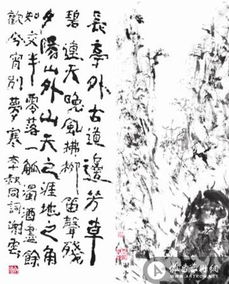 長亭外古道邊芳草
碧連天晚風拂柳笛聲殘
夕陽山外山天之涯地之角
知交半零落一觚濁酒盡餘
歡今宵別夢寒李叔同詞謝雲